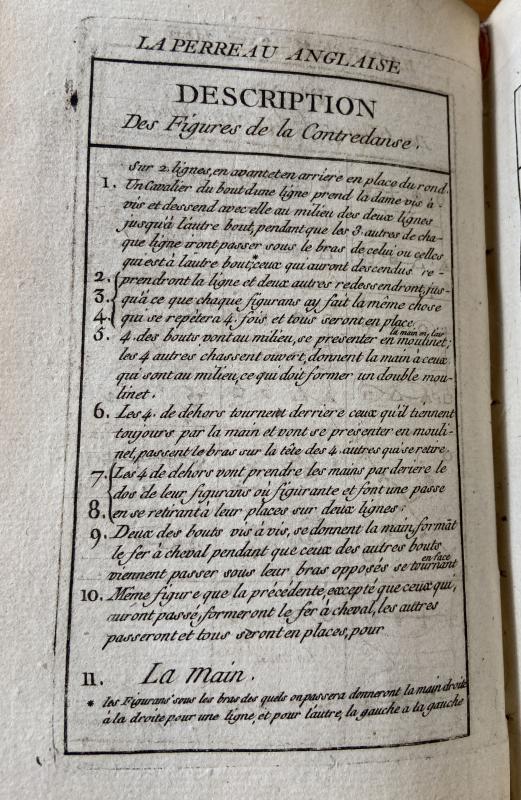 LA PERREAU ANGLAISE
DESCRIPTION
Des Figures de la Contredanse.
Sur 2. lignes, en avant et en arriere en place du rond.
1. Un Cavalier du bout d'une ligne prend la dame vis à-
vis et dessend avec elle au milieu des deux lignes
jusqu'à l'autre bout, pendant que les 3. autres de cha-
que ligne iront passer sous le bras de celui ou celles
qui est à l'autre bout,* ceux qui auront descendus re-
2. prendront la ligne et deux autres redessendront, jus-
3. qu'à ce que chaque figurans ay fait la même chose
4. qui se repétera 4. fois, et tous seront en place.
5. 4. des bouts vont au milieu, se presenter la main en lair en moulinet;
les 4 autres chassent ouvert, donnent la main à ceux
qui sont au milieu, ce qui doit former un double mou-
linet.
6. Les 4. de dehors tournent derriere ceux qu'il tiennent
toujours par la main et vont se presenter en mouli-
net, passent le bras sur la tête des 4. autres qui se retire.
7. Les 4 de dehors vont prendre les mains par deriere le
dos de leur figurans où figurante et font une passe
8. en se retirant à leur places sur deux lignes.
9. Deux des bouts vis à vis, se donnent la main, formāt
le fér à cheval pendant que ceux des autres bouts
viennent passer sous leur bras opposés se tournant en face
10. Même figure que la précédente, excepté que ceux qui,
auront passé, formeront le fér à cheval, les autres
passeront et tous seront en places, pour
11. La Main.
* les Figurans sous les bras des quels on passera donneront la main droite
à la droite pour une ligne, et pour l'autre, la gauche a la gauche